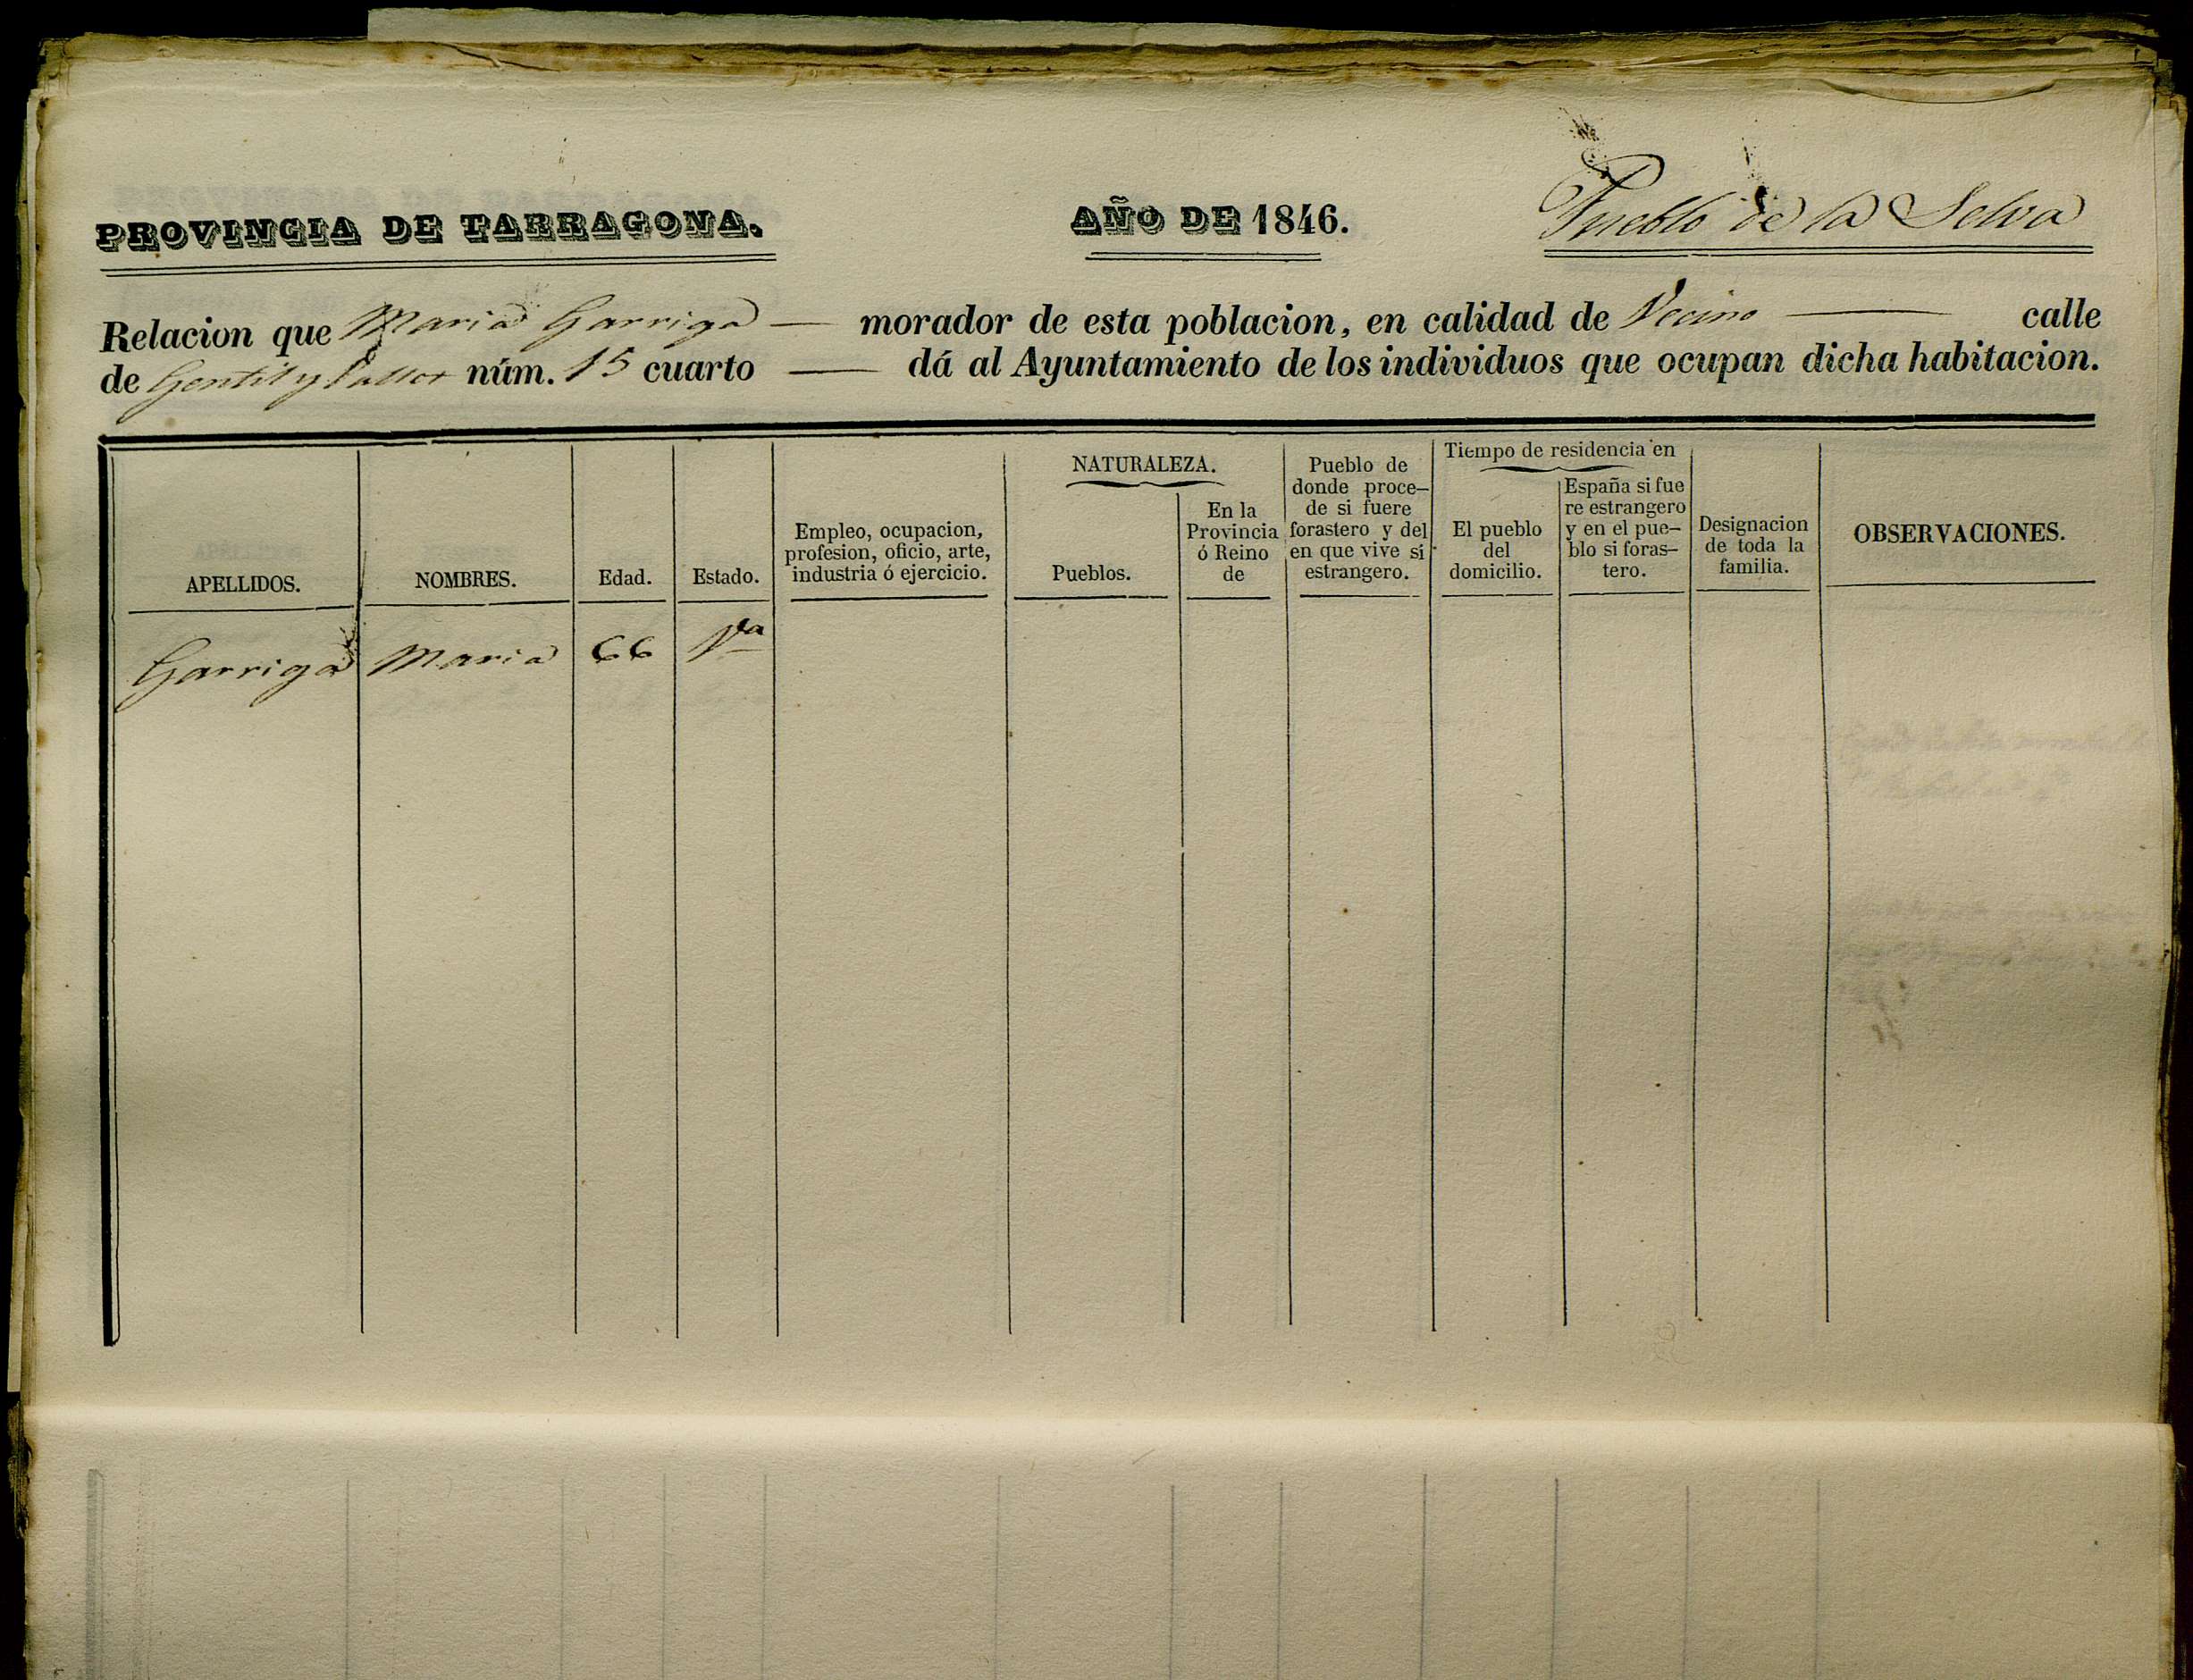 PROVINCIA DE TARRAGONA. AÑO DE 1846. Pueblo de la Selva
Relacion que Maria Garriga — morador de esta poblacion, en calidad de Vecino — calle
de Gentil y núm. 15 cuarto — dá al Ayuntamiento de los individuos que ocupan dicha habitacion.
APELLIDOS.
NOMBRES.
Edad.
Estado.
Empleo, ocupacion,
profesion, oficio, arte,
industria ó ejercicio.
NATURALEZA.
Pueblos.
En la
Provincia
ó Reino
de
Pueblo de
donde proce-
de si fuere
forastero y del
en que vive si
estrangero.
Tiempo de residencia en
El pueblo
del
domicilio.
España si fue
re estrangero
y en el pue-
blo si foras-
tero.
Designacion
de toda la
familia.
OBSERVACIONES.
Garriga Maria 66 Va